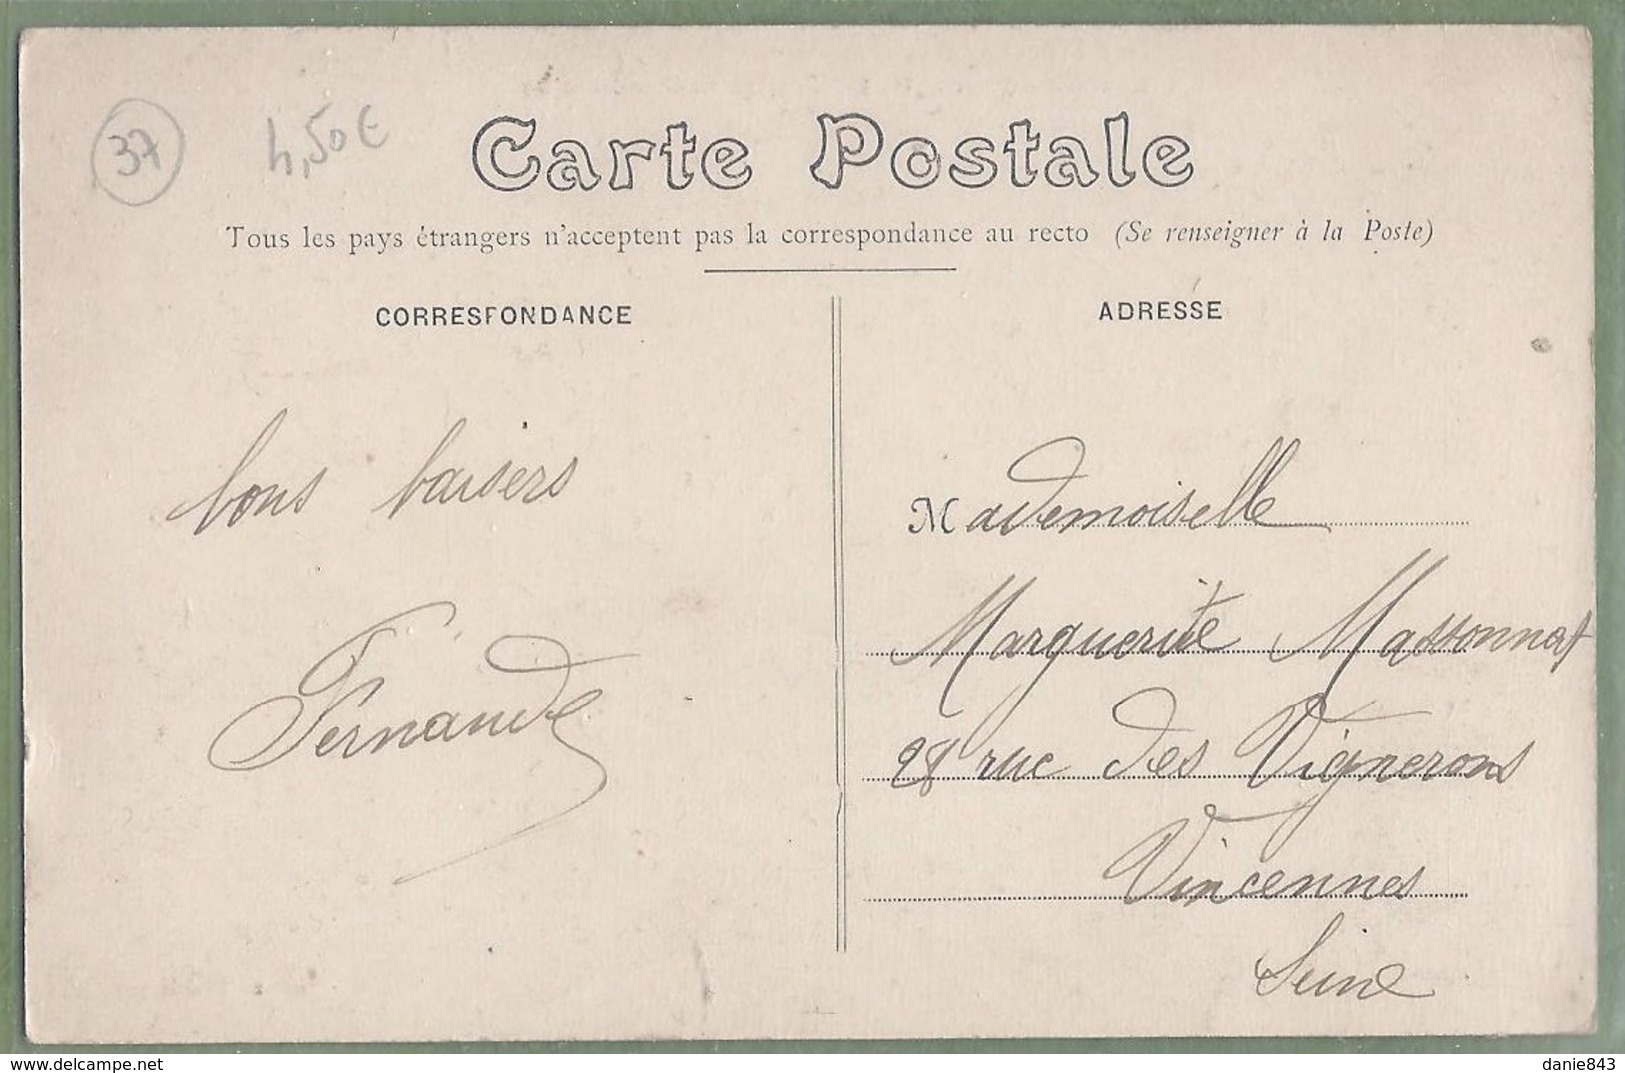 37
4,50€
Carte Postale
Tous les pays étrangers n'acceptent pas la correspondance au recto (Se renseigner à la Poste)
CORRESPONDANCE
bons baisers
Fernande
ADRESSE
Mademoiselle
Marguerite Massonnat
28 rue des Vignerons
Vincennes
Seine
www.delcampe.net
danie843